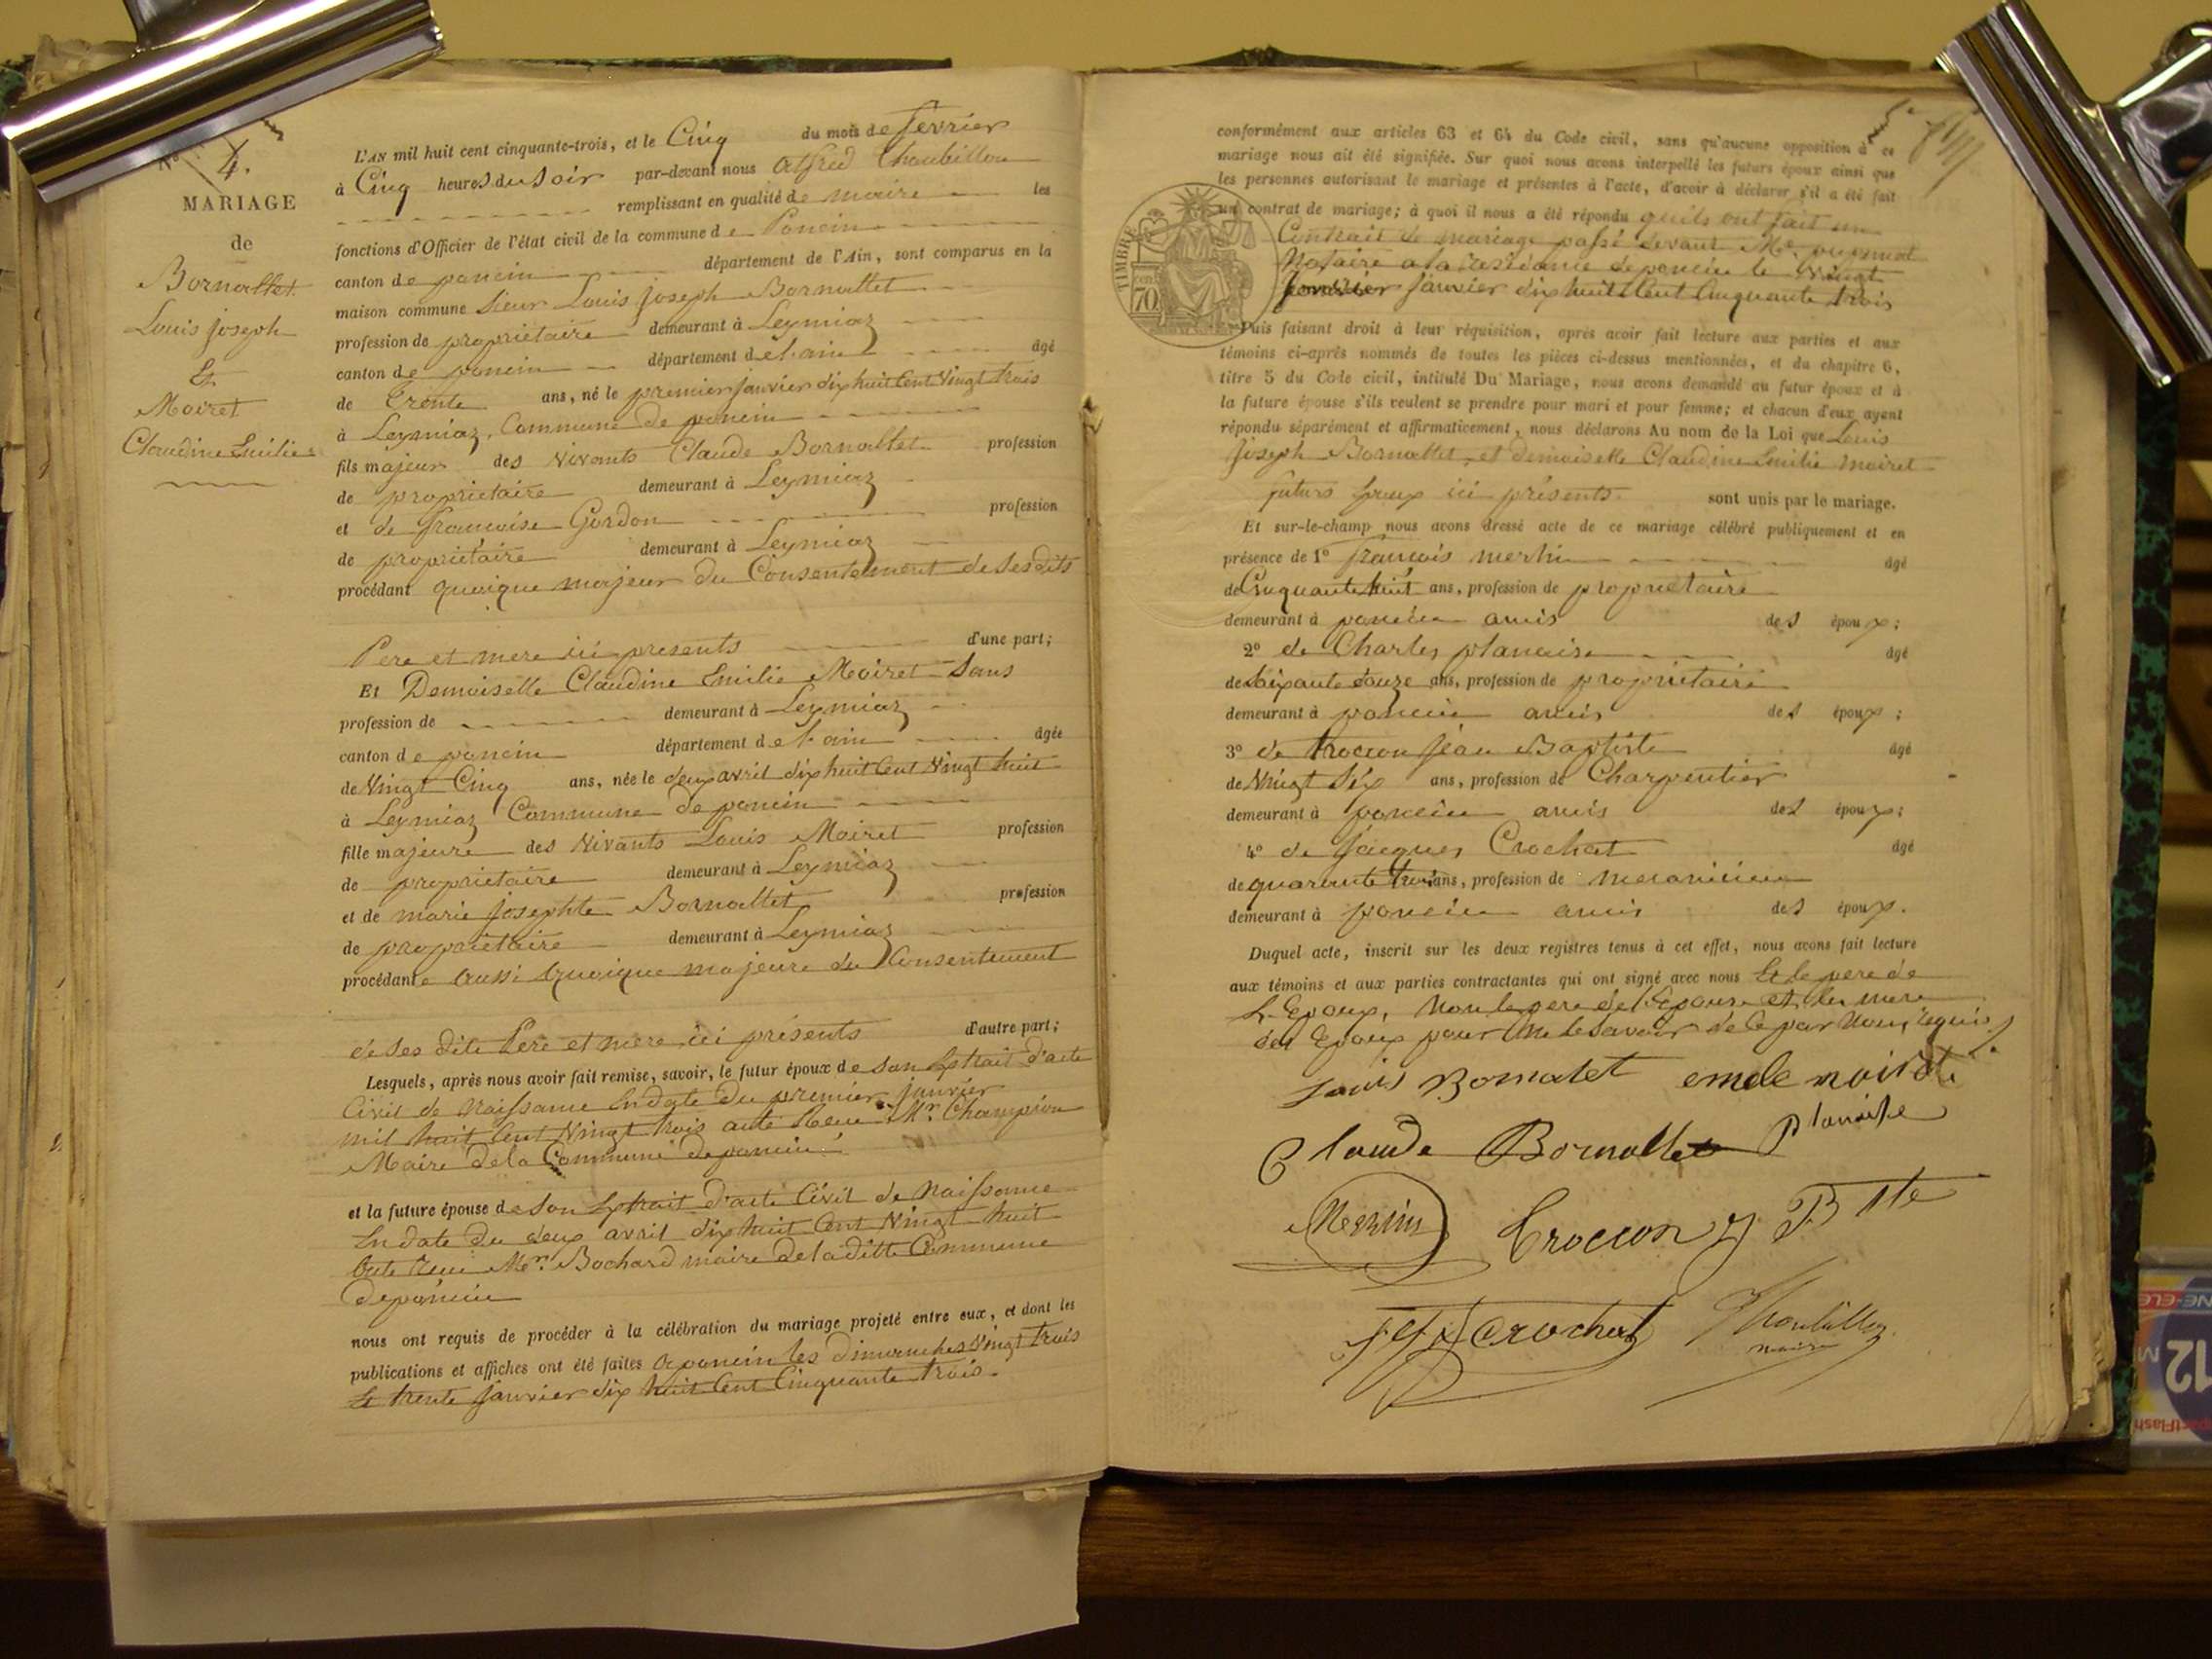 N° 4.
MARIAGE
de
Bornallet
Louis joseph
Et
Moiret
Claudine Emilie
L'AN mil huit cent cinquante-trois, et le Cinq du mois de fevrier
à Cinq heures du soir par-devant nous alfred Chaubillon
remplissant en qualité de maire les
fonctions d'Officier de l'état civil de la commune de Poncin
canton de poncin département de l'Ain, sont comparus en la
maison commune sieur Louis joseph Bornallet
profession de propriétaire demeurant à Leymiaz
canton de poncin département de l'ain âgé
de trente ans, né le premier janvier dix huit Cent Vingt trois
à Leymiaz, Commune de poncin
fils majeur des Vivants Claude Bornallet profession
de propriétaire demeurant à Leymiaz
et de françoise Gordon profession
de propriétaire demeurant à Leymiaz
procédant quoique majeur du Consentement de Ses dits
Pere et mere ici presents d'une part;
Et Demoiselle Claudine Emilie Moiret Sans
profession de demeurant à Leymiaz
canton de poncin département de l'ain âgée
de Vingt Cinq ans, née le deux avril dix huit Cent Vingt huit
à Leymiaz Commune de poncin
fille majeure des Vivants Louis Moiret profession
de propriétaire demeurant à Leymiaz
et de marie josephte Bornallet profession
de propriétaire demeurant à Leymiaz
procédante aussi quoique majeure du Consentement
de Ses dits Pere et mere ici présents d'autre part;
Lesquels, après nous avoir fait remise, savoir, le futur époux de son Extrait d'acte
Civil de Naissance En date du premier janvier
mil huit Cent Vingt trois acte Recu Mr. Champion
Maire de la Commune de poncin
et la future épouse de son Extrait d'acte Civil de Naissance
En date du deux avril dix huit Cent Vingt huit
acte Recu Mr. Bochard maire de la ditte Commune
de poncin
nous ont requis de procéder à la célébration du mariage projeté entre eux, et dont les
publications et affiches ont été faites a poncin les dimanches Vingt trois
Et trente janvier dix huit Cent Cinquante trois.
conformément aux articles 63 et 64 du Code civil, sans qu'aucune opposition à ce
mariage nous ait été signifiée. Sur quoi nous avons interpellé les futurs époux ainsi que
les personnes autorisant le mariage et présentes à l'acte, d'avoir à déclarer s'il a été fait
un contrat de mariage; à quoi il nous a été répondu quils ont fait un
Contrait de mariage passé devant Me.
Notaire a la residence de poncin le Vingt
janvier dix huit Cent Cinquante trois
TIMBRE
70
Puis faisant droit à leur réquisition, après avoir fait lecture aux parties et aux
témoins ci-après nommés de toutes les pièces ci-dessus mentionnées, et du chapitre 6,
titre 5 du Code civil, intitulé Du Mariage, nous avons demandé au futur époux et à
la future épouse s'ils veulent se prendre pour mari et pour femme; et chacun d'eux ayant
répondu séparément et affirmativement, nous déclarons Au nom de la Loi que Louis
Joseph Bornallet et demoiselle Claudine Emilie moiret
futurs Epoux ici présents sont unis par le mariage.
Et sur-le-champ nous avons dressé acte de ce mariage célébré publiquement et en
présence de 1° françois merlin âgé
de Cinquante huit ans, profession de propriétaire
demeurant à poncin amis des époux;
2° de Charles planaise âgé
de Soixante douze ans, profession de propriétaire
demeurant à poncin amis des époux;
3° de Croccon jean Baptiste âgé
de Vingt Six ans, profession de Charpentier
demeurant à poncin amis des époux;
4° de jacques Crochat âgé
de quarante trois ans, profession de mecanicien
demeurant à poncin amis des époux.
Duquel acte, inscrit sur les deux registres tenus à cet effet, nous avons fait lecture
aux témoins et aux parties contractantes qui ont signé avec nous Et le pere de
L'Epoux, Non le pere de l'Epouse et les mere
des Epoux pour Ne le Savoir de ce par Nous requis
Louis Bornatet
Claude Bornallet Planaise
Merlin Croccon J Bte
Crochat Chaubillon
maire
12